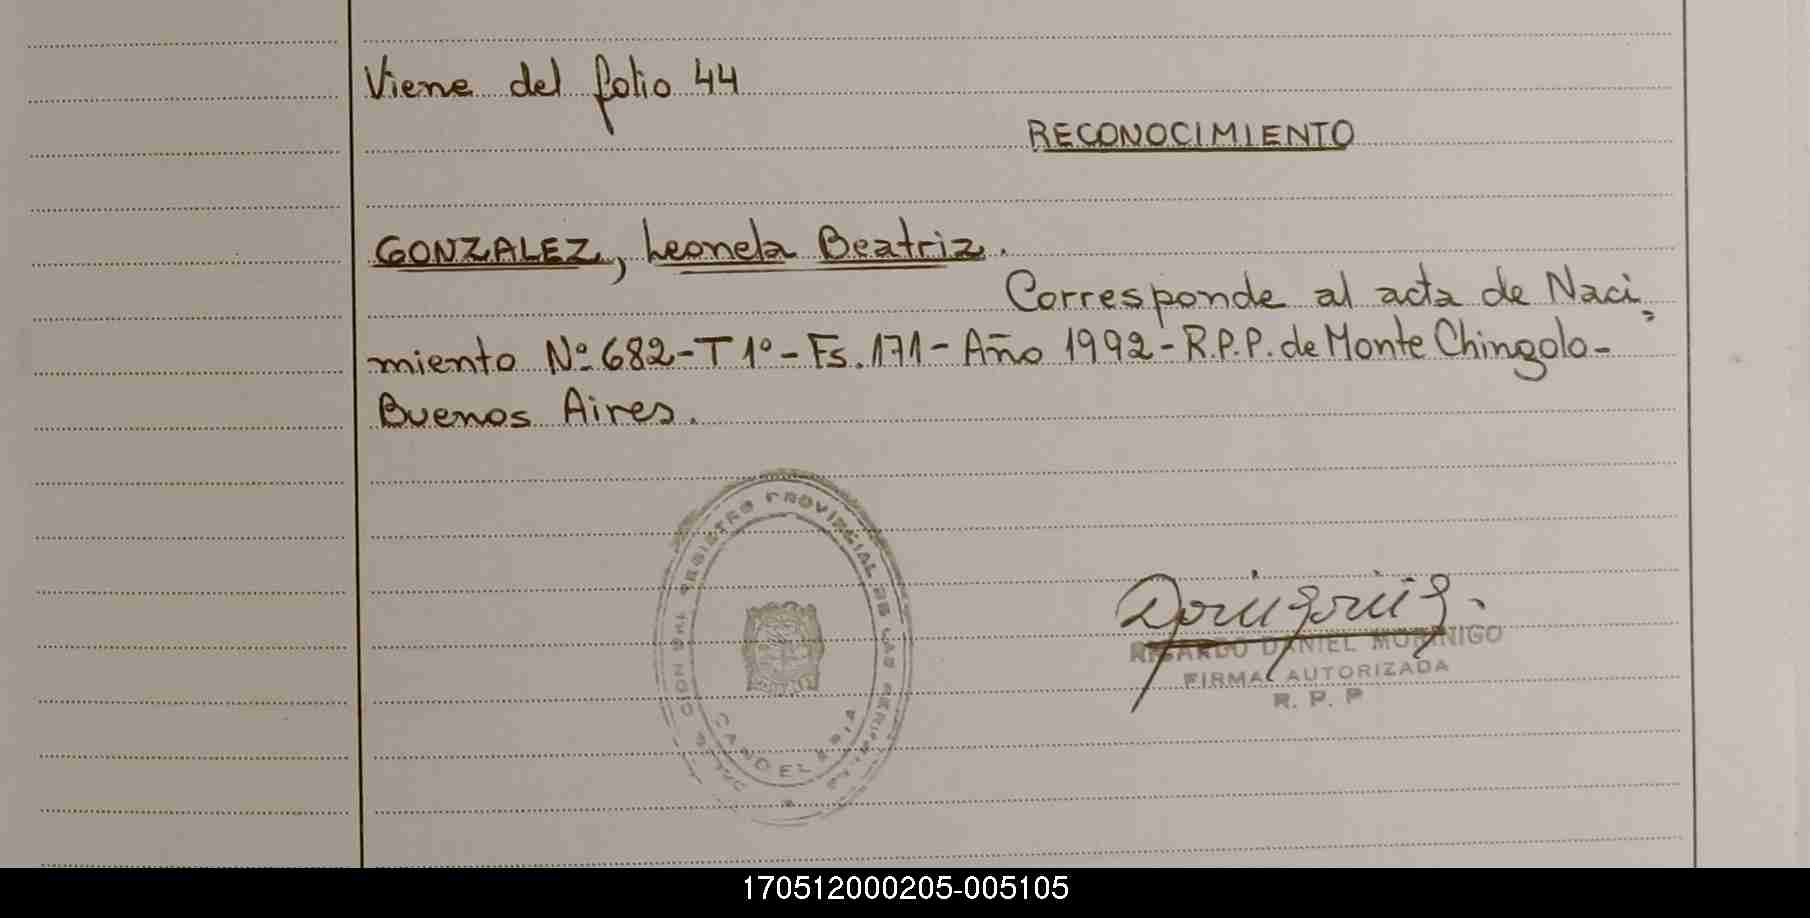 Viene del folio 44
RECONOCIMIENTO
GONZALEZ, Leonela Beatriz.
Corresponde al acta de Naci
miento Nº 682-T 1º-Fs.171-Año 1992-R.P.P. de Monte Chingolo-
Buenos Aires.
REGISTRO PROVINCIAL DE LAS
CANDELARIA
RICARDO DANIEL MORINIGO
FIRMA AUTORIZADA
R. P. P
170512000205-005105